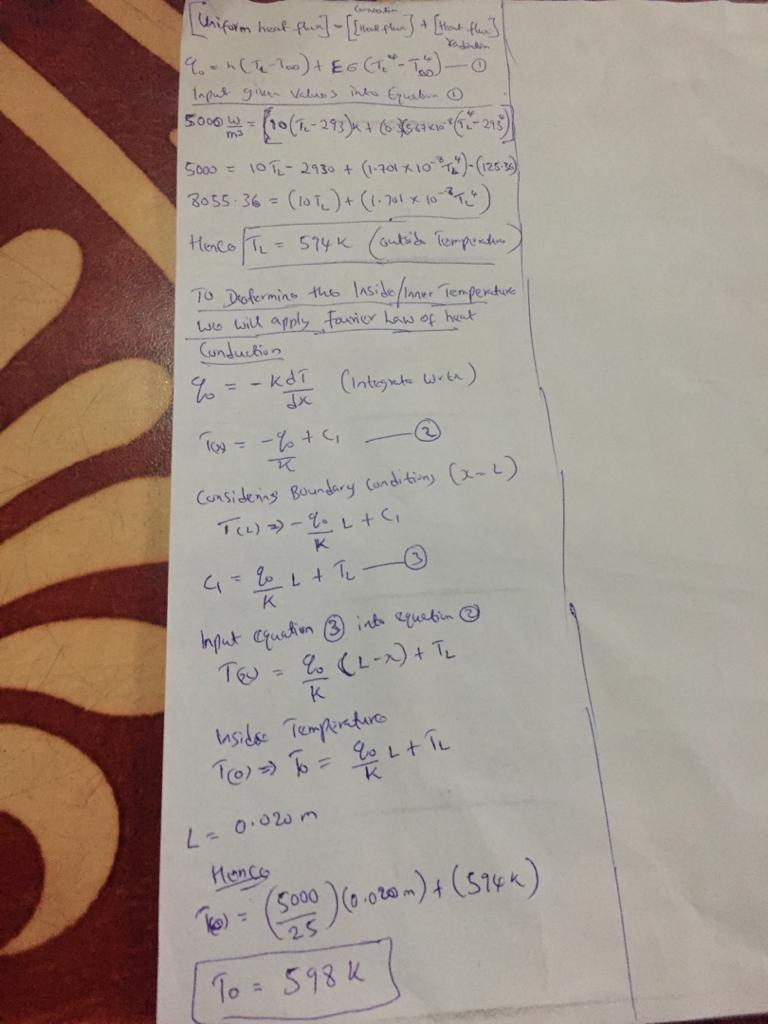 Convection
[Uniform heat flux] = [Heat flux] + [Heat flux]
radiation
q₀ = h(T_L - T∞) + Eσ(T_L⁴ - T∞⁴) — ①
Input given values into Equation ①
5000 W/m² = [10(T_L - 293)K + (0.3)(5.67×10⁻⁸)(T_L⁴ - 293⁴)]
5000 = 10T_L - 2930 + (1.701 × 10⁻⁸T_L⁴) - (125.36)
8055.36 = (10T_L) + (1.701 × 10⁻⁸T_L⁴)
Hence T_L = 594 K (outside Temperature)
To Determine the Inside/Inner Temperature
we will apply Fourier Law of heat
Conduction
q₀ = -K dT/dx (Integrate w r t x)
T(x) = -q₀/K + C₁ — ②
Considering Boundary Conditions (x = L)
T(L) ⇒ -q₀/K L + C₁
C₁ = q₀/K L + T_L — ③
Input equation ③ into equation ②
T(x) = q₀/K (L - x) + T_L
Inside Temperature
T(0) ⇒ T₀ = q₀/K L + T_L
L = 0.020 m
Hence
T(0) = (5000/25)(0.020m) + (594 K)
T₀ = 598 K